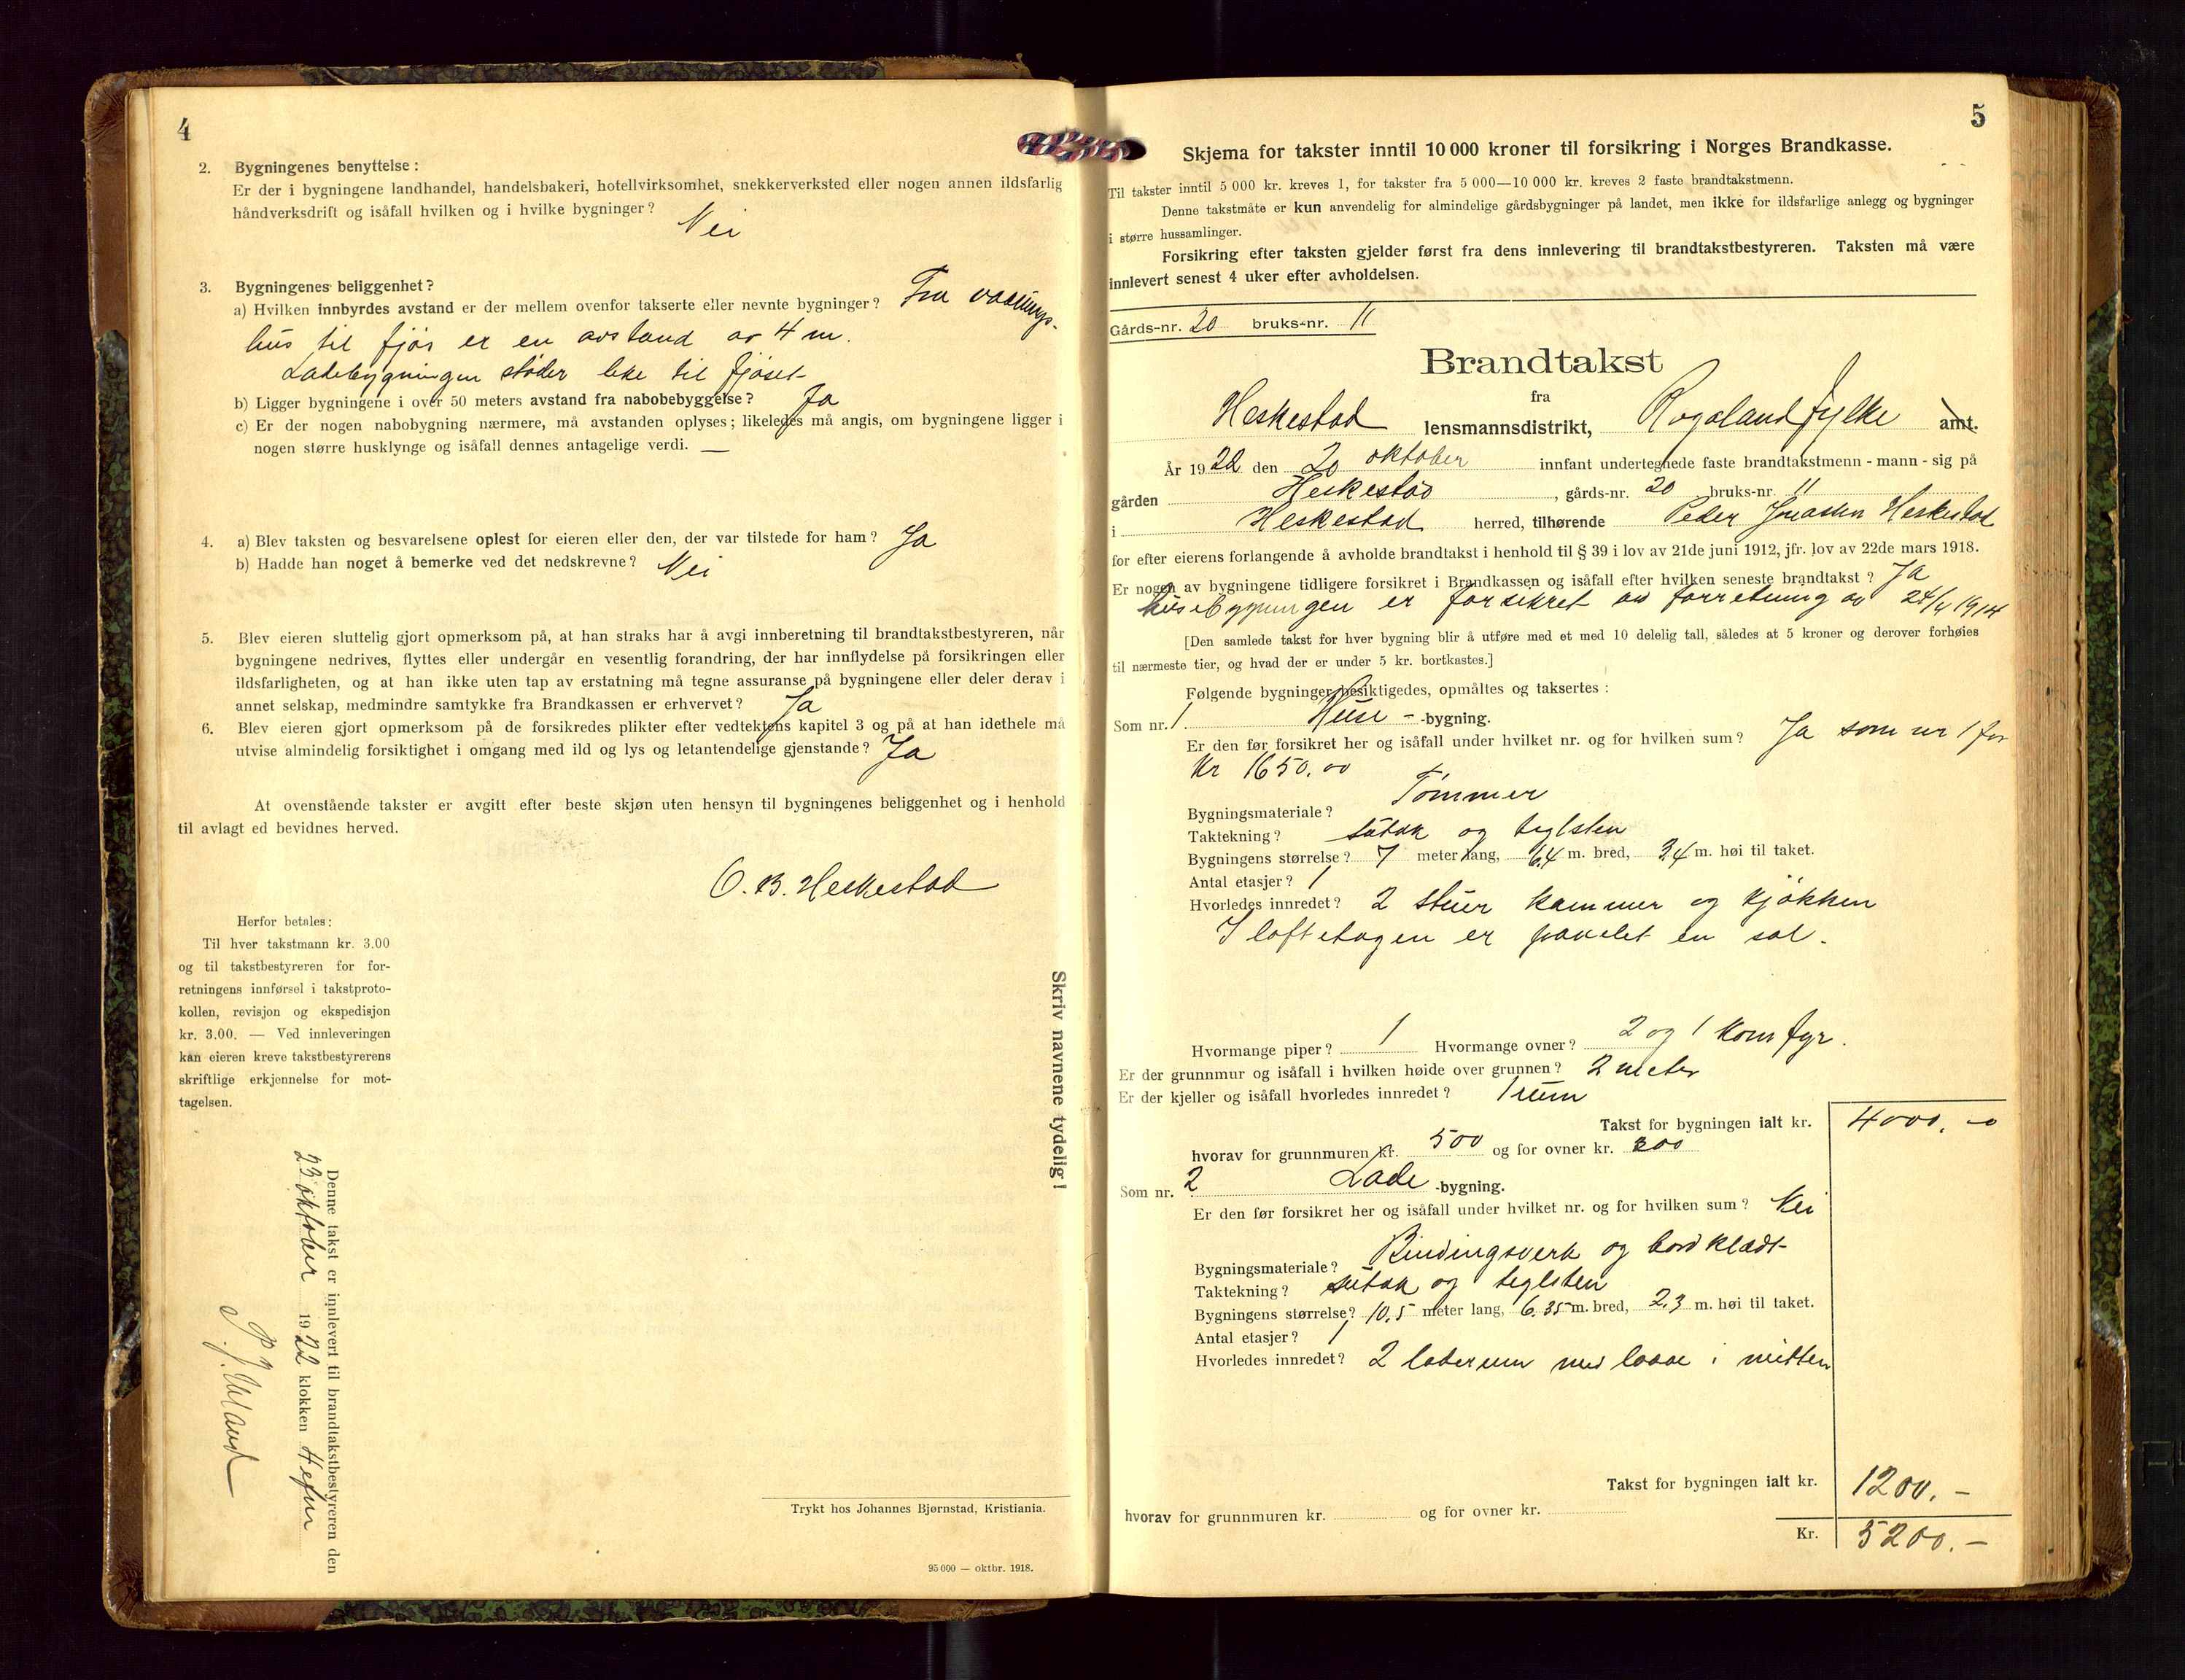 4
2. Bygningenes benyttelse :
Er der i bygningene landhandel, handelsbakeri, hotellvirksomhet, snekkerverksted eller nogen annen ildsfarlig
håndverksdrift og isåfall hvilken og i hvilke bygninger? Nei
3. Bygningenes beliggenhet?
a) Hvilken innbyrdes avstand er der mellem ovenfor takserte eller nevnte bygninger? Fra vaanings-
hus til fjøs er en avstand av 4 m.
Ladebygningen støder like til fjøset
b) Ligger bygningene i over 50 meters avstand fra nabobebyggelse? Ja
c) Er der nogen nabobygning nærmere, må avstanden oplyses; likeledes må angis, om bygningene ligger i
nogen større husklynge og isåfall dennes antagelige verdi. —
4. a) Blev taksten og besvarelsene oplest for eieren eller den, der var tilstede for ham? Ja
b) Hadde han noget å bemerke ved det nedskrevne? Nei
5. Blev eieren sluttelig gjort opmerksom på, at han straks har å avgi innberetning til brandtakstbestyreren, når
bygningene nedrives, flyttes eller undergår en vesentlig forandring, der har innflydelse på forsikringen eller
ildsfarligheten, og at han ikke uten tap av erstatning må tegne assuranse på bygningene eller deler derav i
annet selskap, medmindre samtykke fra Brandkassen er erhvervet? Ja
6. Blev eieren gjort opmerksom på de forsikredes plikter efter vedtektens kapitel 3 og på at han idethele må
utvise almindelig forsiktighet i omgang med ild og lys og letantendelige gjenstande? Ja
At ovenstående takster er avgitt efter beste skjøn uten hensyn til bygningenes beliggenhet og i henhold
til avlagt ed bevidnes herved.
O. B. Heskestad
Herfor betales:
Til hver takstmann kr. 3.00
og til takstbestyreren for for-
retningens innførsel i takstproto-
kollen, revisjon og ekspedisjon
kr. 3.00. — Ved innleveringen
kan eieren kreve takstbestyrerens
skriftlige erkjennelse for mot-
tagelsen.
Skriv navnene tydelig!
Denne takst er innlevert til brandtakstbestyreren den
23 oktober 1922 klokken
Trykt hos Johannes Bjørnstad, Kristiania.
95 000 — oktbr. 1918.
5
Skjema for takster inntil 10 000 kroner til forsikring i Norges Brandkasse.
Til takster inntil 5 000 kr. kreves 1, for takster fra 5 000—10 000 kr. kreves 2 faste brandtakstmenn.
Denne takstmåte er kun anvendelig for almindelige gårdsbygninger på landet, men ikke for ildsfarlige anlegg og bygninger
i større hussamlinger.
Forsikring efter taksten gjelder først fra dens innlevering til brandtakstbestyreren. Taksten må være
innlevert senest 4 uker efter avholdelsen.
Gårds-nr. 20 bruks-nr. 11
Brandtakst
fra
Heskestad lensmannsdistrikt, Rogaland fylke amt.
År 1922 den 20 oktober innfant undertegnede faste brandtakstmenn - mann - sig på
gården Heskestad, gårds-nr. 20 bruks-nr. 11
i Heskestad herred, tilhørende Peder Jonassen Heskestad
for efter eierens forlangende å avholde brandtakst i henhold til § 39 i lov av 21de juni 1912, jfr. lov av 22de mars 1918.
Er nogen av bygningene tidligere forsikret i Brandkassen og isåfall efter hvilken seneste brandtakst? Ja
husebygningen er forsikret av forretning av 24/4 1914
[Den samlede takst for hver bygning blir å utføre med et med 10 delelig tall, således at 5 kroner og derover forhøies
til nærmeste tier, og hvad der er under 5 kr. bortkastes.]
Følgende bygninger besiktigedes, opmåltes og taksertes :
Som nr. 1 Huse - -bygning.
Er den før forsikret her og isåfall under hvilket nr. og for hvilken sum? Ja som nr 1 for
Kr 1650.00
Bygningsmateriale? Tømmer
Taktekning? sutak og teglsten
Bygningens størrelse? 7 meter lang, 6,4 m. bred, 3,4 m. høi til taket.
Antal etasjer? 1
Hvorledes innredet? 2 stuer kammer og kjøkken
I loftetagen er panelet en sal.
Hvormange piper? 1 Hvormange ovner? 2 og 1 komfyr.
Er der grunnmur og isåfall i hvilken høide over grunnen? 2 meter
Er der kjeller og isåfall hvorledes innredet? 1 rum
Takst for bygningen ialt kr. 4000.-
hvorav for grunnmuren kr. 500 og for ovner kr. 200
Som nr. 2 Lade -bygning.
Er den før forsikret her og isåfall under hvilket nr. og for hvilken sum? Nei
Bygningsmateriale? Bindingsverk og bordklædt
Taktekning? sutak og teglsten
Bygningens størrelse? 10,5 meter lang, 6,35 m. bred, 2,3 m. høi til taket.
Antal etasjer? 1
Hvorledes innredet? 2 laderum med laave i midten
Takst for bygningen ialt kr. 1200.-
hvorav for grunnmuren kr. og for ovner kr.
Kr. 5200.-